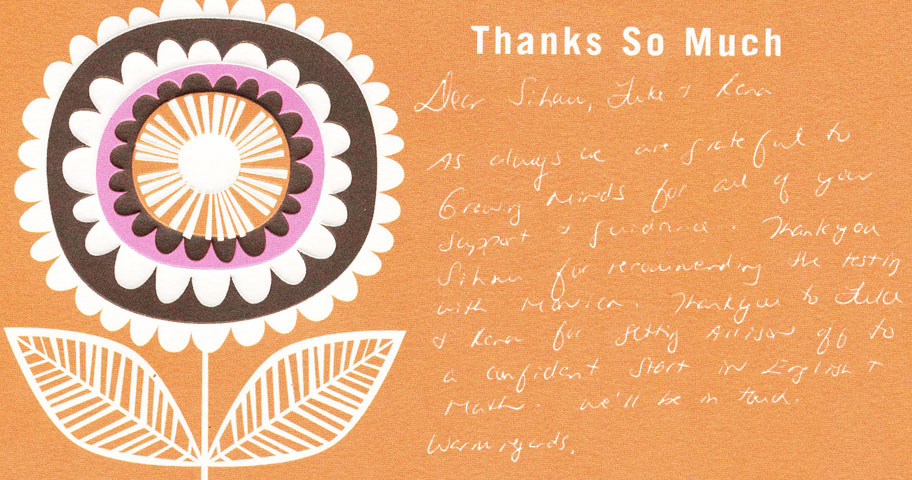 Thanks So Much
Dear Sihau, Luke + Kena
As always we are grateful to
Growing Minds for all of your
support + guidance. Thankyou
Sihau for recommending the testing
with Monica. Thankyou to Luke
+ Kena for setting Allison off to
a confident start in English +
Math. We'll be in touch.
Warm regards,